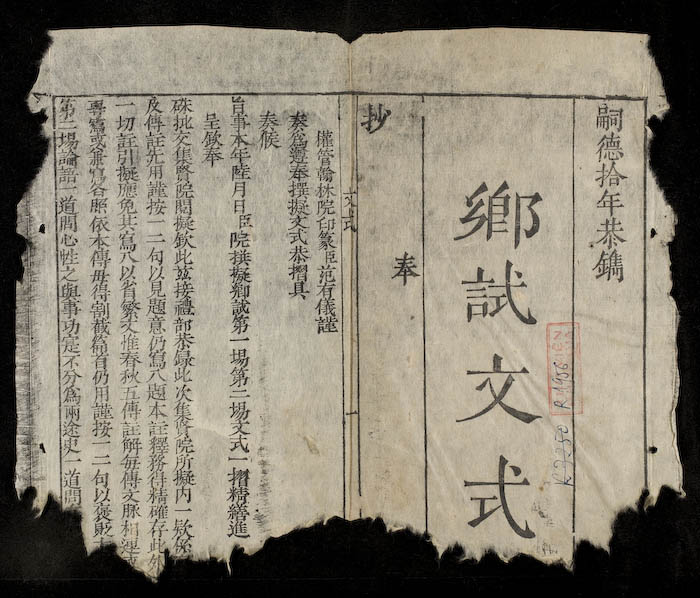 嗣德拾年恭鐫
鄉試文式
奉
抄
文式
一
權管翰林院印篆臣范有儀謹
奏爲遵奉撰擬文式恭摺具
奏候
旨事本年陸月日臣院撰擬鄉試第一場第二場文式一摺精繕進
呈欽奉
硃批交集賢院閱擬欽此玆接禮部恭錄此次集賢院所擬內一欵係
及傳註先用謹按一二句以見題意仍寫入題本註釋務得精確存此外
一切註引擬應免其寫入以省繁文惟春秋五傳註解每傳文脈相連
專寫或兼寫各照依本傳毋得割截篇首仍用謹按一二句以褒貶
第二場論語一道問心性之與事功寔不分爲兩途史一道問